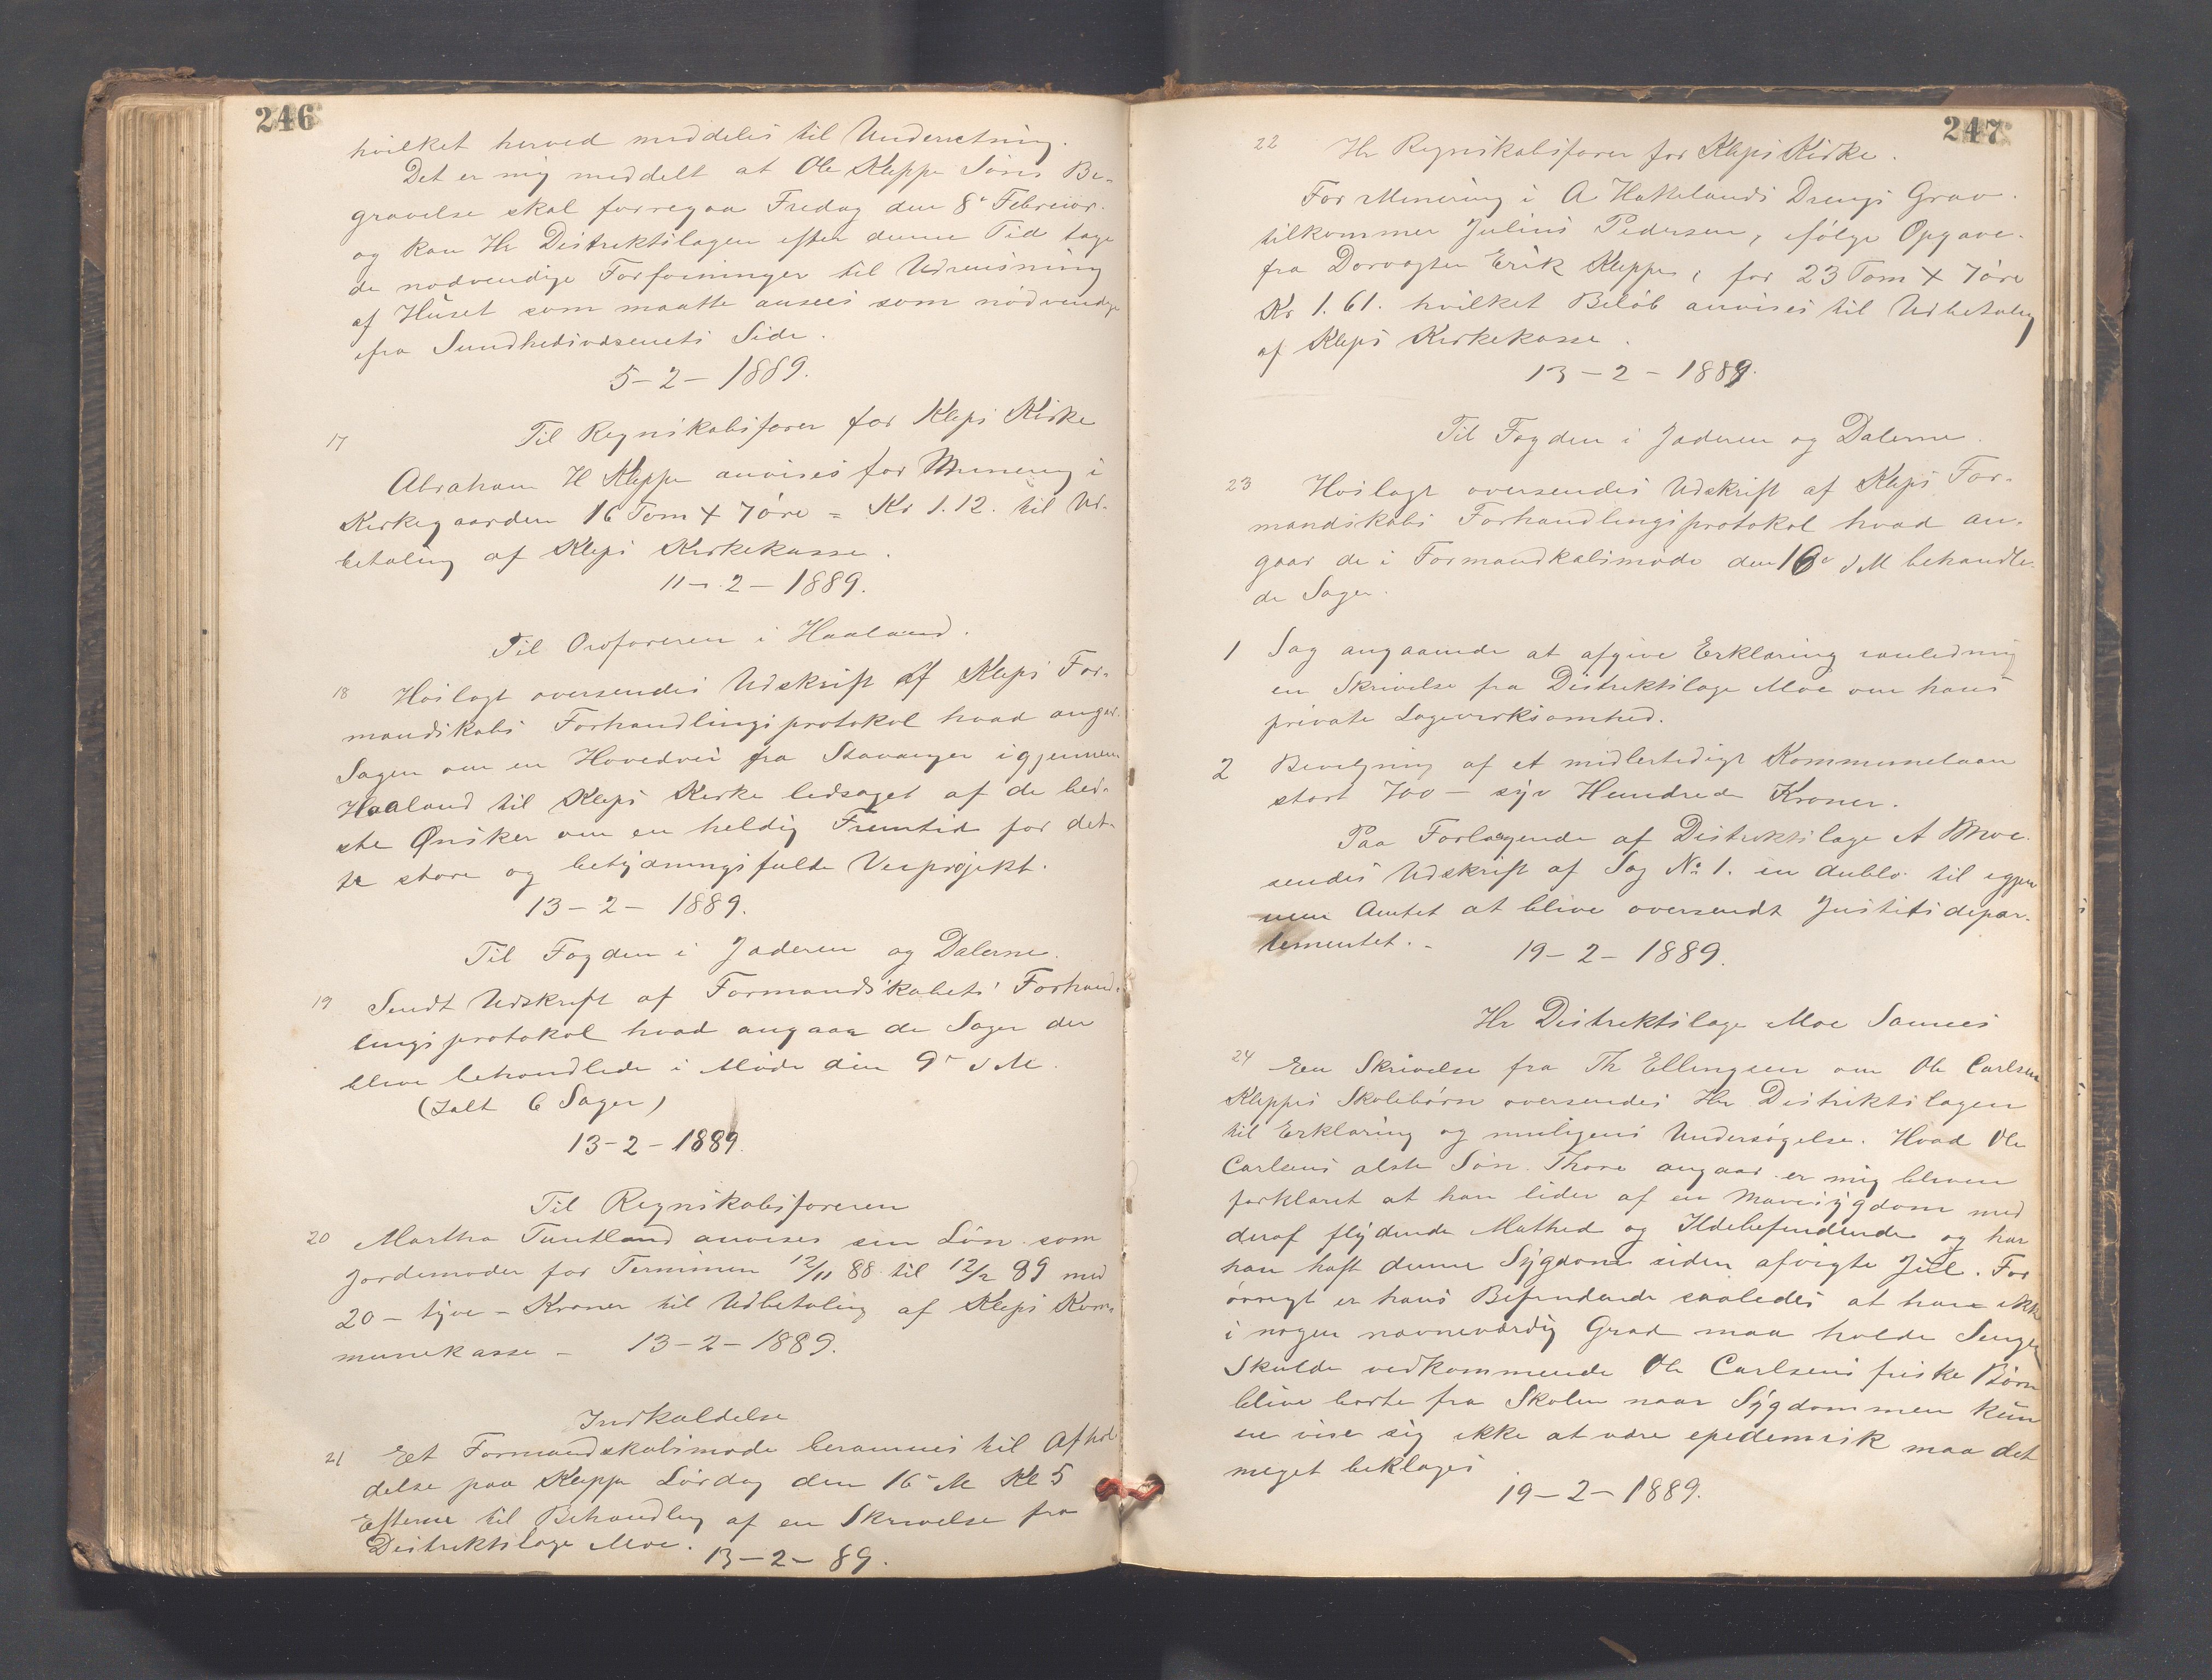 246
hvilket herved meddeles til Underretning.
Det er mig meddelt at Ole Kleppe Söns Be-
gravelse skal forregaa Fredag den 8de Februar.
og kan Hr Distriktslægen efter denne Tid tage
de nødvendige Forføininger til Udrensning
af Huset som maatte ansees som nödvendige
fra Sundhedsvæsenets Side.
5-2-1889.
Til Regnskabsfører for Kleps Kirke
17
Abraham H Kleppe anvises for Minering i
Kirkegaarden 16 Tom X 7 øre = Kr 1.12. til Ud-
betaling af Kleps Kirkekasse.
11-2-1889.
Til Ordføreren i Haaland.
18 Hoslagt oversendes Udskrift af Kleps For-
mandskabs Forhandlingsprotokol hvad angaar
Sagen om en Hovedvei fra Stavanger igjennem
Haaland til Kleps Kirke ledsaget af de bed-
ste Ønsker om en heldig Fremtid for det-
te store og betydningsfulde Veiprojekt.
13-2-1889.
Til Fogden i Jæderen og Dalerne.
19 Sendt Udskrift af Formandskabets Forhand-
lingsprotokol hvad angaar de Sager der
bleve behandlede i Møde den 9de d M.
(Ialt 6 Sager)
13-2-1889.
Til Regnskabsføreren
20 Martha Tuntland anvises sin Lön som
Jordemoder for Terminen 12/11 88 til 12/2 89 med
20 - tyve - Kroner til Udbetaling af Kleps Kom-
munekasse - 13-2-1889.
Indkaldelse
21 Et Formandskabsmøde berammes til Afhol-
delse paa Kleppe Lördag den 16 M Kl 5
Efterm til Behandling af en Skrivelse fra
Distriktslæge Moe. 13-2-89.
247
22 Hr Regnskabsfører for Kleps Kirke.
For Minering i A Hakelands Drengs Grav.
tilkommer Julius Pedersen, ifölge Opgave
fra Erik Kleppe, for 23 Tom X 7 öre
Kr 1.61. hvilket Belöb anvises til Udbetaling
af Kleps Kirkekasse.
13-2-1889.
Til Fogden i Jæderen og Dalerne.
23 Hoslagt oversendes Udskrift af Kleps For-
mandskabs Forhandlingsprotokol hvad an-
gaar de i Formandskabsmøde den 16de d M behandle-
de Sager.
1 Sag angaaende at afgive Erklæring ianledning
en Skrivelse fra Distriktslæge Moe om hans
private Lægevirksomhed.
2 Bevilgning af et midlertidigt Kommunelaan
stort 700 - syv Hundrede Kroner.
Paa Forlangende af Distriktslæge A Moe
sendes Udskrift af Sag No 1. in dublo til igjen-
nem Amtet at blive oversendt Justitsdepar-
tementet. - 19-2-1889.
Hr Distriktslæge Moe Sannes
24 En Skrivelse fra Th Ellingsen om Ole Carlsen
Kleppes Skolebörn oversendes Hr Distriktslægen
til Erklæring og muligens Undersögelse. Hvad Ole
Carlsens ælste Sön Thore angaar er mig bleven
forklaret at han lider af en Mavesygdom med
deraf flydende Mathed og Ildebefindende og har
han haft denne Sygdom siden afvigte Jul. For
övrigt er hans Befindende saaledes at han ikke
i nogen nævneværdig Grad maa holde Sengen
Skulde vedkommende Ole Carlsens friske Börn
blive borte fra Skolen naar Sygdommen kun-
ne vise sig ikke at være epedemisk maa det
meget beklages.
19-2-1889.